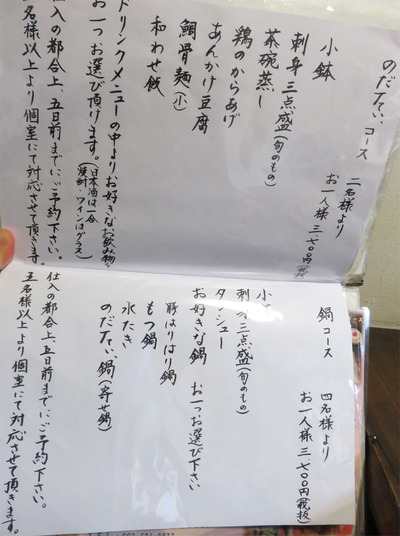 のだてぃ コース
二名様より
お一人様 三、七〇〇円(税抜)
小鉢
刺身三点盛(旬のもの)
茶碗蒸し
鶏のからあげ
あんかけ豆腐
鯛骨麺(小)
和わせ飯
ドリンクメニューの中より、お好きなお飲み物を
お一つお選び頂けます。(日本酒は一合 焼酎・ワインはグラス)
仕入の都合上、五日前までにご予約下さい。
五名様以上より個室にて対応させて頂きます。
鍋コース
四名様より
お一人様 三、七〇〇円(税抜)
小
刺身三点盛(旬のもの)
お好きな鍋 お一つお選び下さい
豚はりはり鍋
もつ鍋
水たき
のだてぃ鍋(寄せ鍋)
仕入の都合上、五日前までにご予約下さい。
五名様以上より個室にて対応させて頂きます。